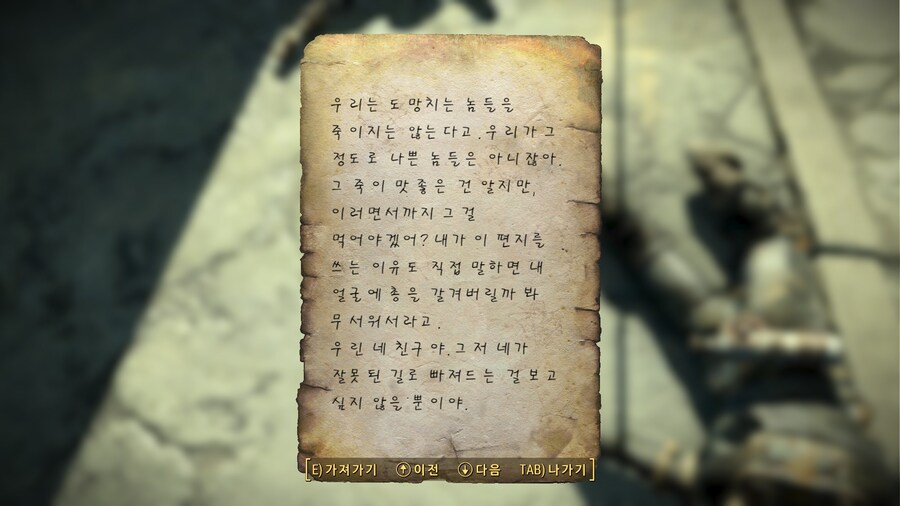 우리는 도망치는 놈들을
죽이지는 않는다고. 우리가 그
정도로 나쁜 놈들은 아니잖아.
그 죽이 맛좋은 건 알지만,
이러면서까지 그걸
먹어야겠어? 내가 이 편지를
쓰는 이유도 직접 말하면 내
얼굴에 총을 갈겨버릴까 봐
무서워서라고.
우린 네 친구야. 그저 네가
잘못된 길로 빠져드는 걸 보고
싶지 않을 뿐이야.
E) 가져가기 이전 다음 TAB) 나가기